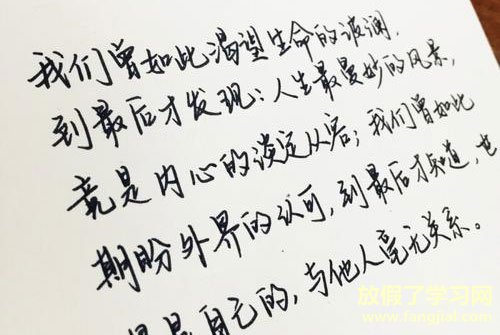 我们曾如此渴望生命的波澜,
到最后才发现:人生最曼妙的风景,
竟是内心的淡定从容;我们曾如此
期盼外界的认可,到最后才知道,世
是自己的,与他人毫无关系。
放假了学习网
www.fangjial.com